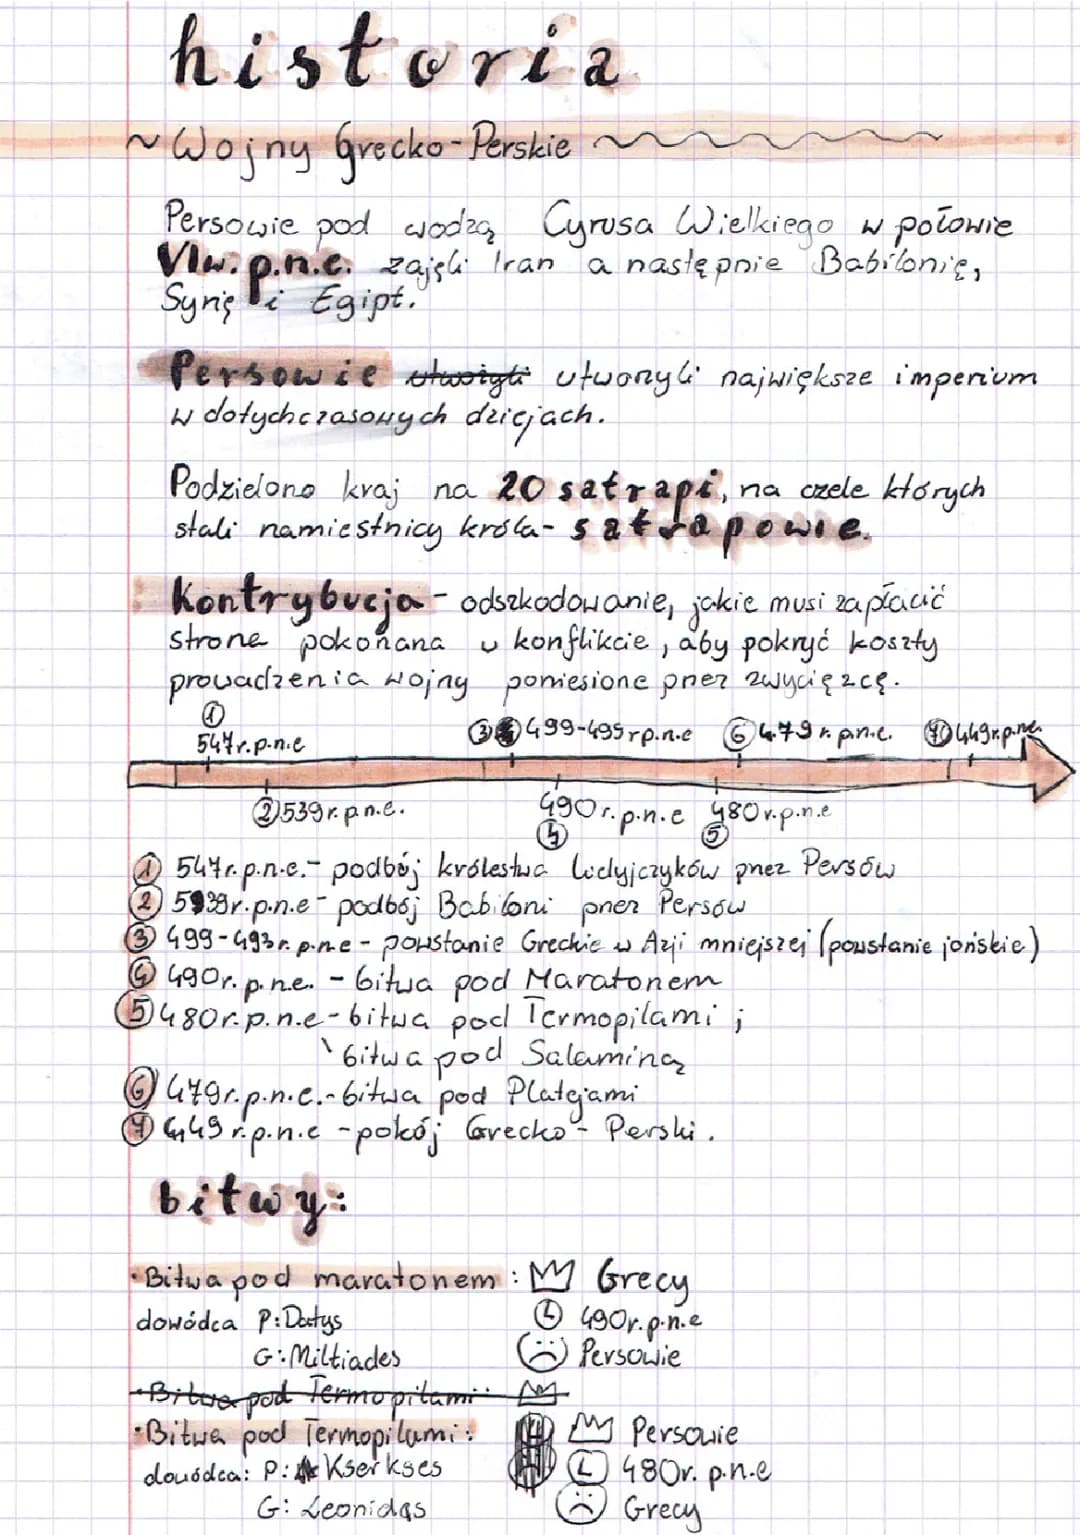 historia
~ Wojny Grecko-Perskie
Persowie pod wodzą Cyrusa Wielkiego w połowie
VIw. p.n.e. zajęli Iran a następnie Babilonię,
Syrię i Egipt.
Persowie utworzyli największe imperium
w dotychczasowych dziejach.
Podzielono kraj na 20 satrapi, na czele których
stali namiestnicy króla - satrapowie.
Kontrybucja - odszkodowanie, jakie musi zapłacić
strona pokonana w konflikcie, aby pokryć koszty
prowadzenia wojny poniesione przez zwycięzcę.
① 547r.p.n.e
③ 499-495r p.n.e ⑥ 479 r. p.n.e. ⑦ 449r.p.n.e.
② 539r.p.n.e. 490r.p.n.e ④ 480r.p.n.e ⑤
① 547r.p.n.e. - podbój królestwa Lidyjczyków przez Persów
② 539r.p.n.e - podbój Babiloni przez Persów
③ 499-493r. p.n.e - powstanie Greckie w Azji mniejszej (powstanie jońskie)
④ 490r. p.n.e. - bitwa pod Maratonem
⑤ 480r.p.n.e - bitwa pod Termopilami ;
bitwa pod Salaminą
⑥ 479r.p.n.e. - bitwa pod Platejami
⑦ 449 r.p.n.e - pokój Grecko - Perski.
bitwy:
• Bitwa pod maratonem : Grecy
dowódca P: Datys L 490r.p.n.e
G: Miltiades Persowie
• Bitwa pod Termopilami:
• Bitwa pod Termopilami: Persowie
dowódca: P: Kserkses L 480r. p.n.e
G: Leonidas Grecy